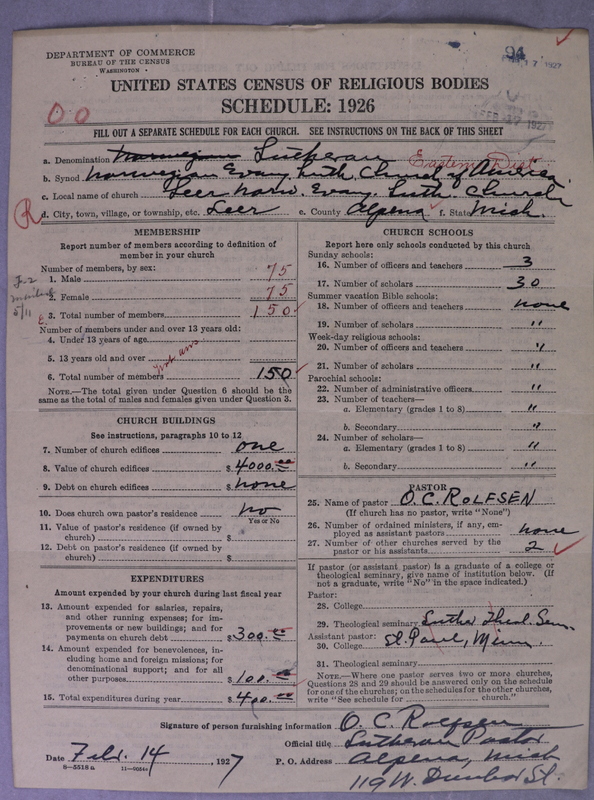 DEPARTMENT OF COMMERCE
BUREAU OF THE CENSUS
WASHINGTON
94
FEB 17 1927
UNITED STATES CENSUS OF RELIGIOUS BODIES
SCHEDULE: 1926
00
FILL OUT A SEPARATE SCHEDULE FOR EACH CHURCH. SEE INSTRUCTIONS ON THE BACK OF THIS SHEET
a. Denomination Norwegian Lutheran Eastern Dist
b. Synod Norwegian Evang. Luth. Church of America
c. Local name of church Leer Norw. Evang. Luth. Church
R d. City, town, village, or township, etc. Leer e. County Alpena f. State Mich.
MEMBERSHIP
Report number of members according to definition of
member in your church
Number of members, by sex:
1. Male 75
2. Female 75
3. Total number of members 150
Number of members under and over 13 years old:
4. Under 13 years of age
5. 13 years old and over
6. Total number of members 150
NOTE.—The total given under Question 6 should be the
same as the total of males and females given under Question 3.
5/11
CHURCH BUILDINGS
See instructions, paragraphs 10 to 12
7. Number of church edifices one
8. Value of church edifices $4000.00
9. Debt on church edifices $none
10. Does church own pastor's residence no
Yes or No
11. Value of pastor's residence (if owned by
church) $
12. Debt on pastor's residence (if owned by
church) $
EXPENDITURES
Amount expended by your church during last fiscal year
13. Amount expended for salaries, repairs,
and other running expenses; for im-
provements or new buildings; and for
payments on church debt $300.00
14. Amount expended for benevolences, in-
cluding home and foreign missions; for
denominational support; and for all
other purposes $100.00
15. Total expenditures during year $400.00
CHURCH SCHOOLS
Report here only schools conducted by this church
Sunday schools:
16. Number of officers and teachers 3
17. Number of scholars 30
Summer vacation Bible schools:
18. Number of officers and teachers none
19. Number of scholars "
Week-day religious schools:
20. Number of officers and teachers "
21. Number of scholars "
Parochial schools:
22. Number of administrative officers "
23. Number of teachers—
a. Elementary (grades 1 to 8) "
b. Secondary "
24. Number of scholars—
a. Elementary (grades 1 to 8) "
b. Secondary "
PASTOR
25. Name of pastor O. C. ROLFSEN
(If church has no pastor, write "None")
26. Number of ordained ministers, if any, em-
ployed as assistant pastors none
27. Number of other churches served by the
pastor or his assistants 2
If pastor (or assistant pastor) is a graduate of a college or
theological seminary, give name of institution below. (If
not a graduate, write "No" in the space indicated.)
Pastor:
28. College
29. Theological seminary Luther Theol. Sem.
Assistant pastor: St. Paul, Minn.
30. College
31. Theological seminary
NOTE.—Where one pastor serves two or more churches,
Questions 28 and 29 should be answered only on the schedule
for one of the churches; on the schedules for the other churches,
write "See schedule for church."
Signature of person furnishing information O. C. Rolfsen
Official title Lutheran Pastor
Date Febr. 14, 1927 P. O. Address Alpena, Mich
8—5518a 11—8034a 119 W. Dunbar St.